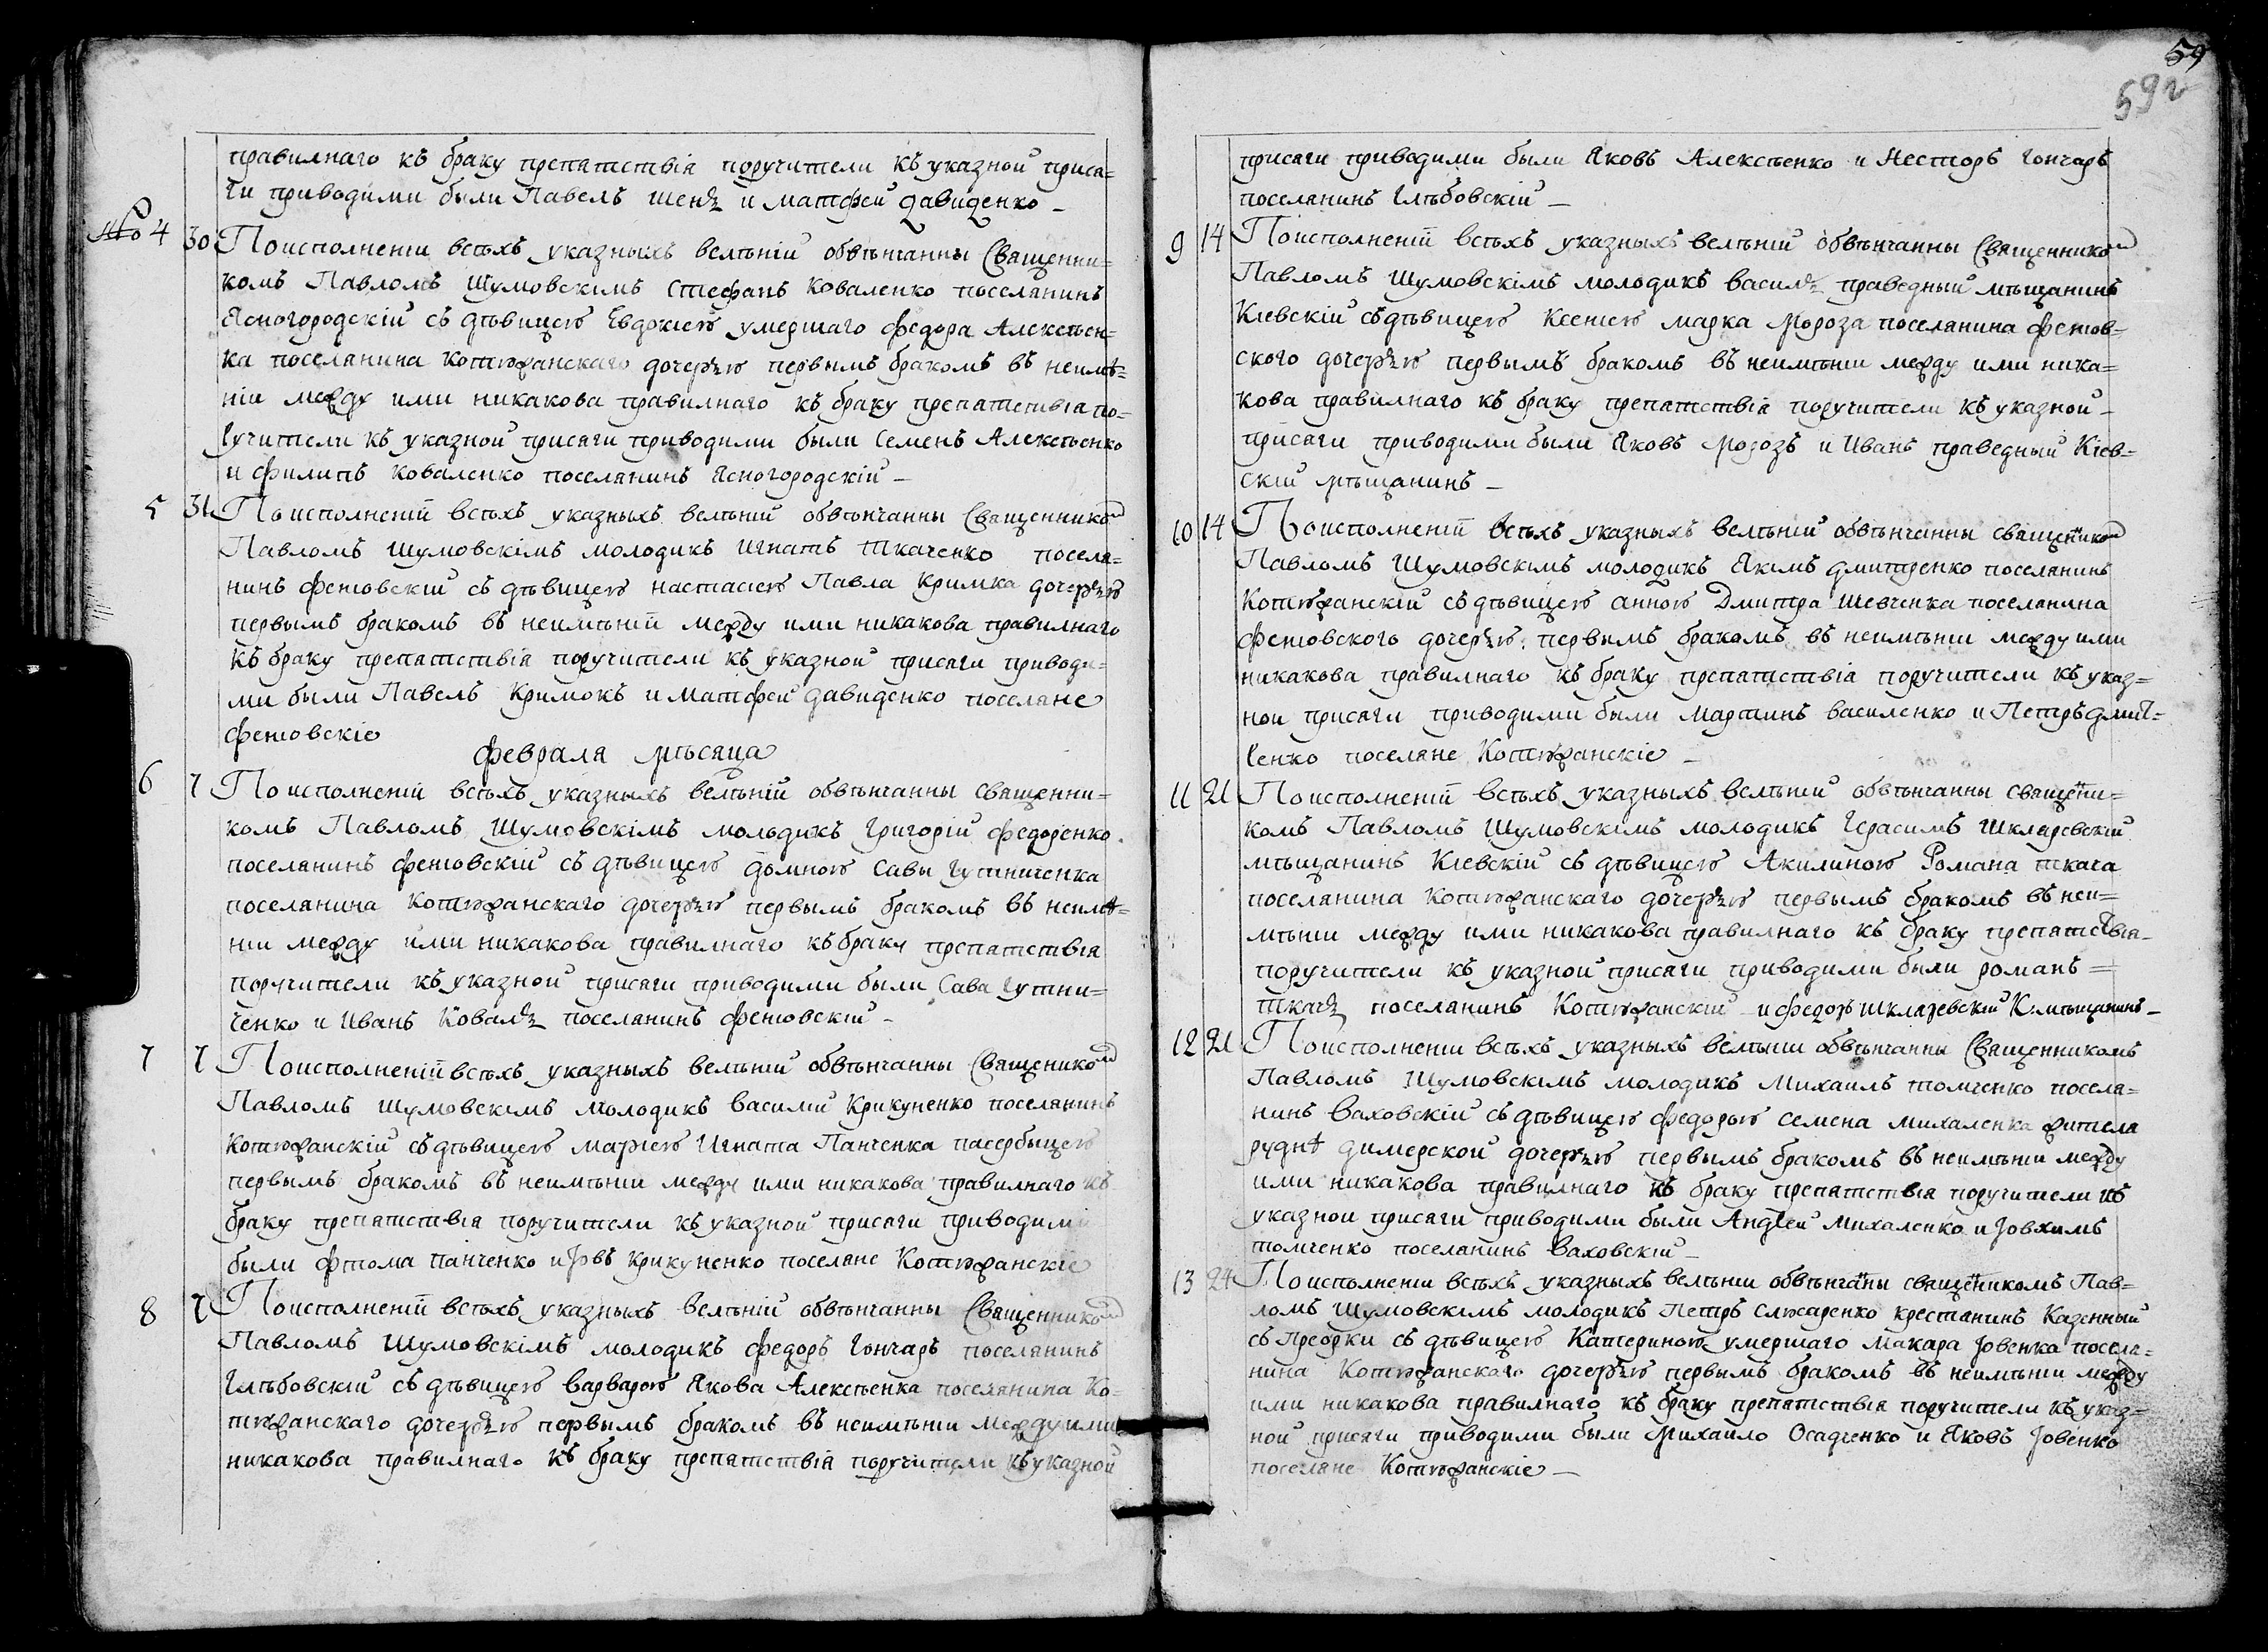 правилнаго къ браку препятствія поручители къ указной прися=
ги приводими были Павелъ и Матфей Давиденко –
№ 4 30 По исполненіи всѣхъ указныхъ велѣній обвѣнчанны Священни=
комъ Павломъ Шумовскімъ Стефанъ Коваленко поселянинъ
Ясногородскій съ дѣвицею Евдокіею умершаго Федора Алексѣен=
ка поселянина Котюжанскаго дочерью первымъ бракомъ въ неимѣ=
ніи между ими никакова правилнаго къ браку препятствія по=
ручители къ указной присяги приводими были Семенъ Алексѣенко
и Филипъ Коваленко поселянинъ Ясногородскій –
5 31 По исполненій всѣхъ указныхъ велѣній обвѣнчанны Священником
Павломъ Шумовскімъ молодикъ Игнатъ Ткаченко поселя=
нинъ Феневскій съ дѣвицею Настасіею Павла Кримка дочерью
первымъ бракомъ въ неимѣній между ими никакова правилнаго
къ браку препятствія поручители къ указной присяги приводи=
ми были Павелъ Кримокъ и Матфей Давиденко поселяне
Феневскіе
Февраля мѣсяца
6 7 По исполненій всѣхъ указныхъ велѣній обвѣнчанны священни=
комъ Павломъ Шумовскімъ молодикъ Григорій Федоренко
поселянинъ Феневскій съ дѣвицею Домною Савы Гутниченка
поселянина Котюжанскаго дочерью первымъ бракомъ въ неимѣ=
ніи между ими никакова правилнаго къ браку препятствія
поручители къ указной присяги приводими были Сава Гутни=
ченко и Иванъ Коваль поселянинъ Феневскій –
7 7 По исполненій всѣхъ указныхъ велѣній обвѣнчанны Священиком
Павломъ Шумовскімъ молодикъ Василій Крикуненко поселянинъ
Котюжанскій съ дѣвицею Маріею Игната Панченка пасербицею
первымъ бракомъ въ неимѣніи между ими никакова правилнаго къ
браку препятствія поручители къ указной присяги приводими
были Фтома Панченко и Іовъ Крикуненко поселяне Котюжанскіе
8 7 По исполненій всѣхъ указныхъ велѣній обвѣнчанны Священником
Павломъ Шумовскімъ молодикъ Федоръ Гончаръ поселянинъ
Глѣбовскій съ дѣвицею Варварою Якова Алексѣенка поселянина Ко=
тюжанскаго дочерью первымъ бракомъ въ неимѣніи между ими
никакова правилнаго къ браку препятствія поручители къ указной
59
59
присяги приводими были Яковъ Алексѣенко и Несторъ Гончаръ
поселянинъ Глѣбовскій –
9 14 По исполненій всѣхъ указныхъ велѣній обвѣнчанны Священником
Павломъ Шумовскімъ молодикъ Василь Праведный мѣщанинъ
Кіевскій съ дѣвицею Ксеніею Марка Мороза поселянина Фенев=
ского дочерью первымъ бракомъ въ неимѣніи между ими ника=
кова правилнаго къ браку препятствія поручители къ указной –
присяги приводими были Яковъ Морозъ и Иванъ Праведный Кіев=
скій мѣщанинъ –
10 14 По исполненій всѣхъ указныхъ велѣній обвѣнчанны священиком
Павломъ Шумовскімъ молодикъ Якимъ Дмитренко поселянинъ
Котюжанскій съ дѣвицею Анною Дмитра Шевченка поселянина
Феневского дочерью первымъ бракомъ въ неимѣніи между ими
никакова правилнаго къ браку препятствія поручители къ указ=
ной присяги приводими были Мартинъ Василенко и Петръ Дмит=
ренко поселяне Котюжанскіе –
11 21 По исполненій всѣхъ указныхъ велѣній обвѣнчанны священи=
комъ Павломъ Шумовскімъ молодикъ Герасимъ Шкляревскій
мѣщанинъ Кіевскій съ дѣвицею Акилиною Романа Ткача
поселянина Котюжанскаго дочерью первымъ бракомъ въ неи=
мѣніи между ими никакова правилнаго къ браку препятствія –
поручители къ указной присяги приводими были Романъ =
Ткачь поселянинъ Котюжанскій и Федоръ Шкляревскій К: мѣщанинъ –
12 21 По исполненіи всѣхъ указныхъ велѣніи обвѣнчанны Священникомъ
Павломъ Шумовскімъ молодикъ Михаилъ Томченко поселя=
нинъ Ваховскій съ дѣвицею Федорою Семена Михаленка жителя
руднѣ Димерской дочерью первымъ бракомъ въ неимѣніи между
ими никакова правилнаго къ браку препятствія поручители къ
указной присяги приводими были Андрей Михаленко и Іовхимъ
Томченко поселянинъ Ваховскій –
13 24 По исполненіи всѣхъ указныхъ велѣніи обвѣнчаны священикомъ Пав=
ломъ Шумовскімъ молодикъ Петръ Слюсаренко крестянинъ Казенный
съ Преорки съ дѣвицею Катериною умершаго Макара Іовенка поселя=
нина Котюжанскаго дочерью первымъ бракомъ въ неимѣніи между
ими никакова правилнаго къ браку препятствія поручители къ указ=
ной присяги приводими были Михайло Осадченко и Яковъ Іовенко
поселяне Котюжанскіе –